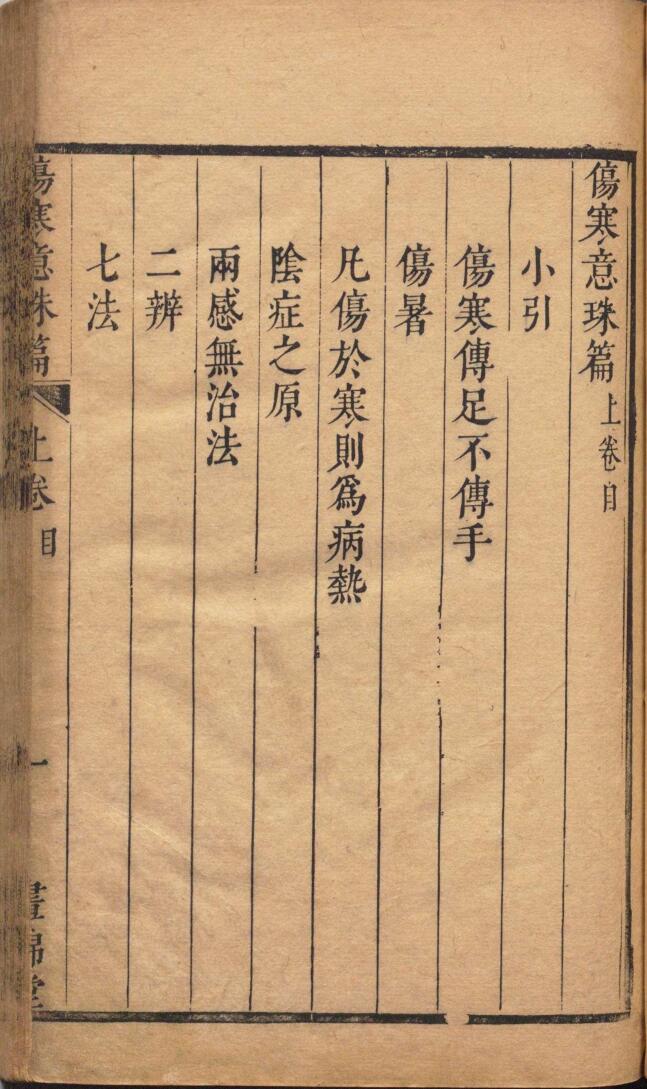 傷寒意珠篇上卷目
小引
傷寒傳足不傳手
傷暑
凡傷於寒則爲病熱
陰症之原
兩感無治法
二辨
七法
傷寒意珠篇 上卷目 一 晝錦堂